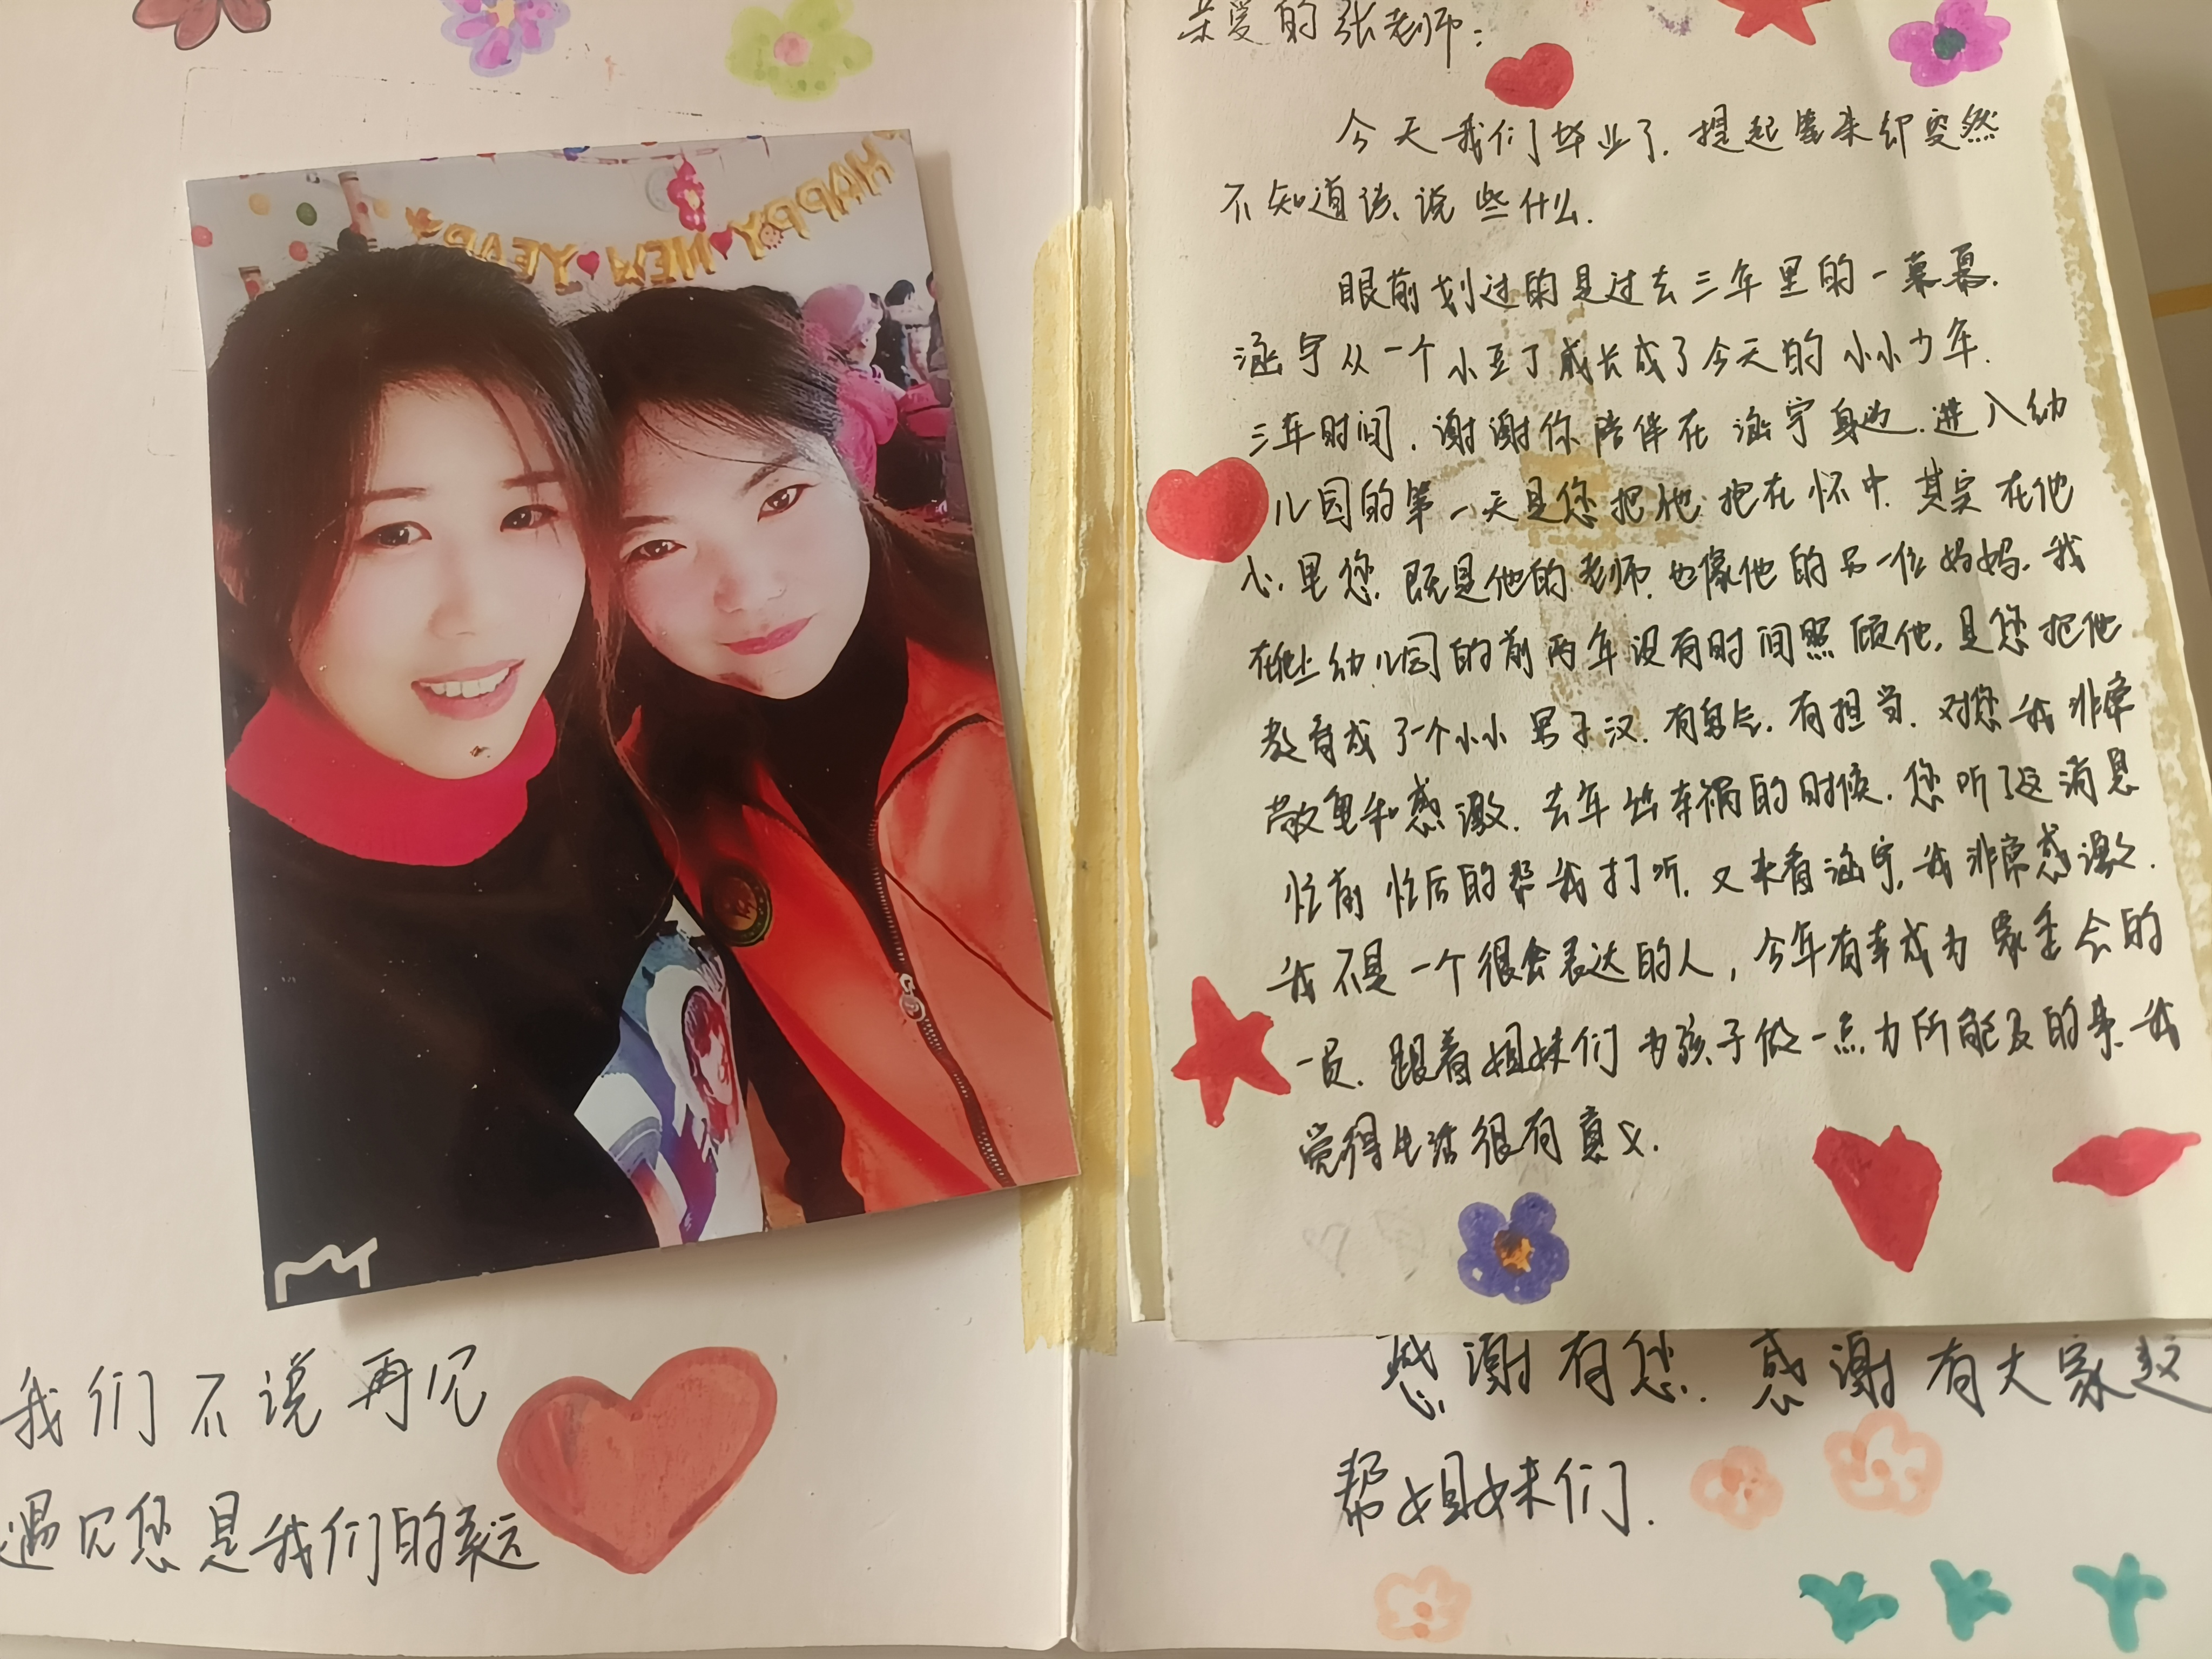 HAPPY NEW YEAR
我们不说再见
遇见您是我们的幸运
亲爱的张老师：
今天我们毕业了.提起笔来却突然
不知道该说些什么.
眼前划过的是过去三年里的一幕幕.
涵宇从一个小豆丁成长成了今天的小小少年.
三年时间.谢谢你陪伴在涵宇身边.进入幼
儿园的第一天是您把他抱在怀中.其实在他
心里您既是他的老师.也像他的另一位妈妈.我
在他上幼儿园的前两年没有时间照顾他,是您把他
教育成了一个小小男子汉.有勇气.有担当.对您我非常
敬重和感激.去年出车祸的时候.您听了这消息
忙前忙后的帮我打听.又来看涵宇,我非常感激.
我不是一个很会表达的人，今年有幸成为家委会的
一员.跟着姐妹们为孩子做一点力所能及的事.我
觉得生活很有意义.
感谢有您.感谢有大家这
帮姐妹们.